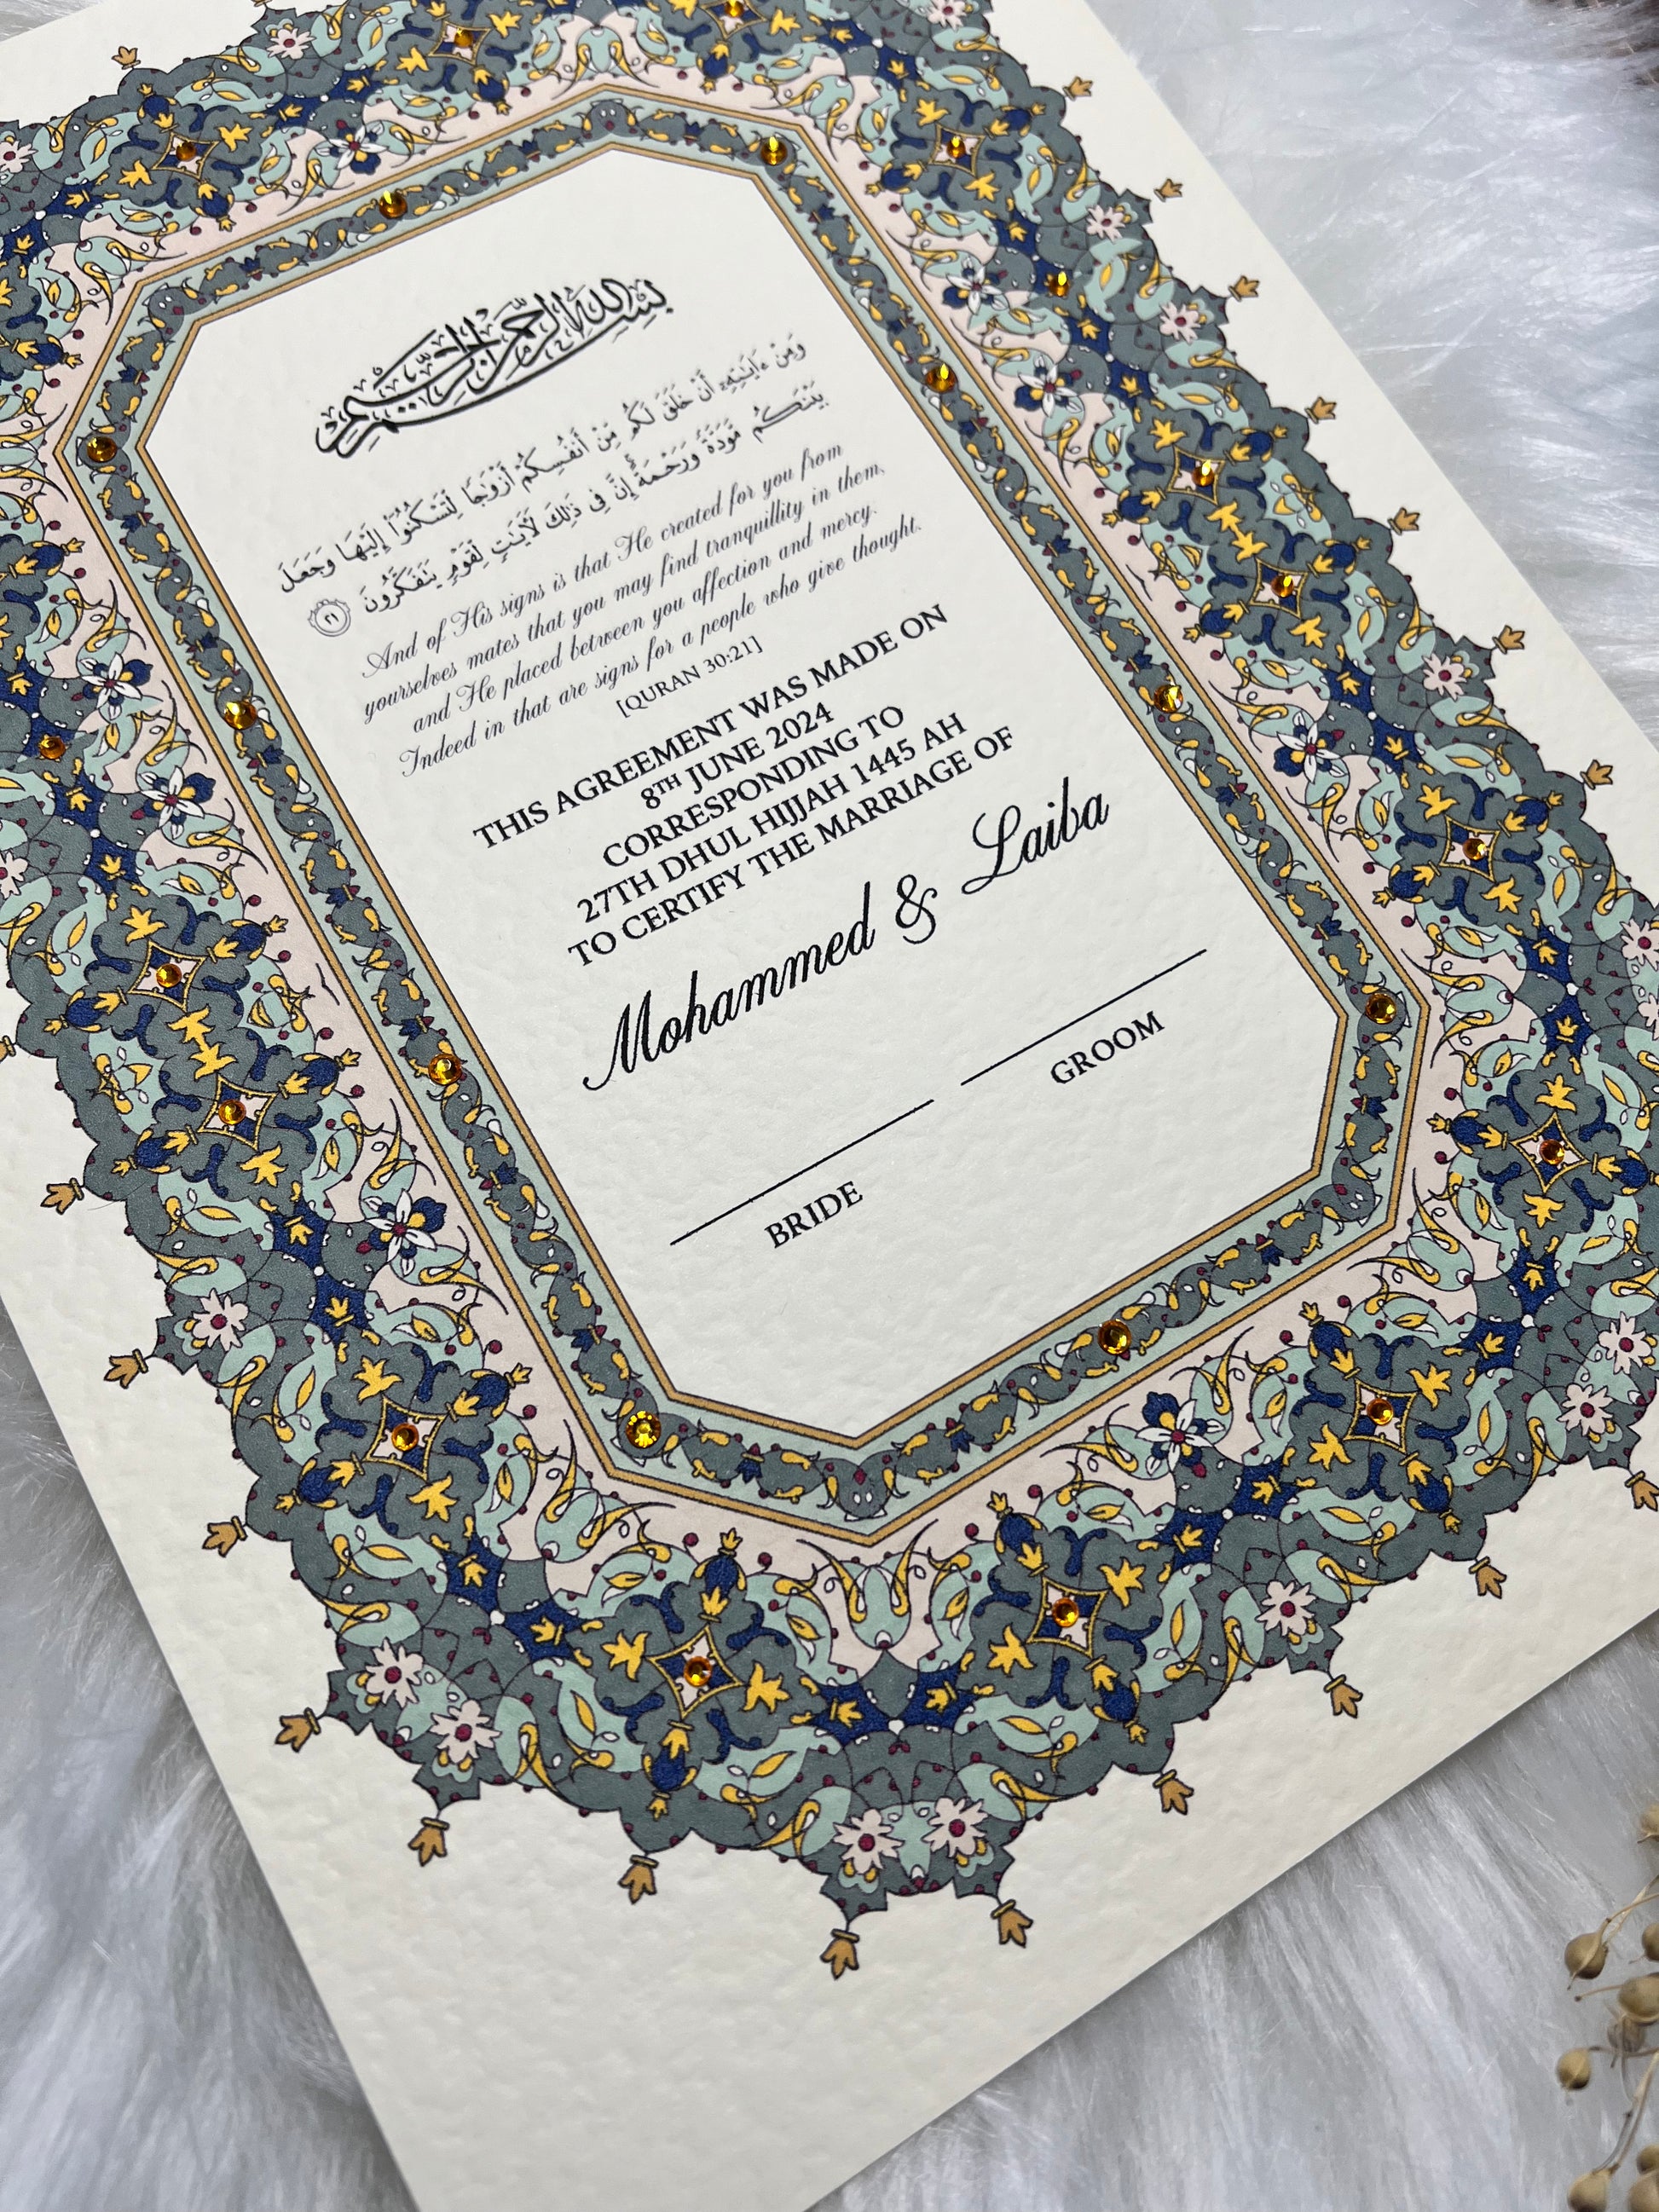 بِسْمِ اللَّهِ الرَّحْمَٰنِ الرَّحِيمِ
وَمِنْ ءَايَٰتِهِۦٓ أَنْ خَلَقَ لَكُم مِّنْ أَنفُسِكُمْ أَزْوَٰجًا لِّتَسْكُنُوٓا۟ إِلَيْهَا وَجَعَلَ
بَيْنَكُم مَّوَدَّةً وَرَحْمَةً إِنَّ فِى ذَٰلِكَ لَءَايَٰتٍ لِّقَوْمٍ يَتَفَكَّرُونَ ٢١
And of His signs is that He created for you from
yourselves mates that you may find tranquillity in them,
and He placed between you affection and mercy.
Indeed in that are signs for a people who give thought.
[QURAN 30:21]
THIS AGREEMENT WAS MADE ON
8TH JUNE 2024
CORRESPONDING TO
27TH DHUL HIJJAH 1445 AH
TO CERTIFY THE MARRIAGE OF
Mohammed & Laiba
BRIDE GROOM